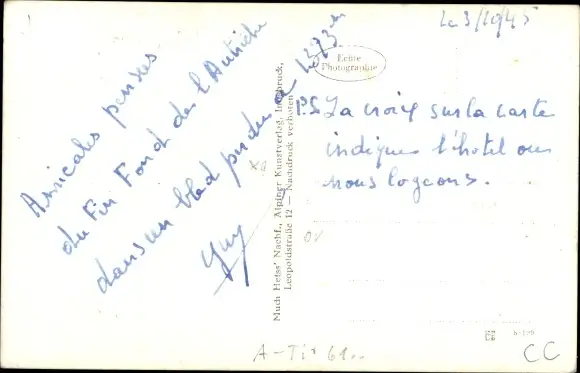 Le 3/10/45
Amicales pensées
du Fin Fond de l'Autriche
dans un bled perdu à 1273m
Guy
Echte
Photographie
P.S. La croix sur la carte
indique l'hotel ou
nous logeons.
Much Heiss' Nachf., Alpiner Kunstverlag, Innsbruck,
Leopoldstraße 12 — Nachdruck verboten
CC